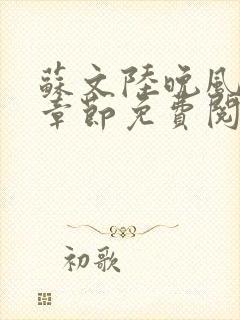 蘇文陸晚風
章節免費閱
初歌